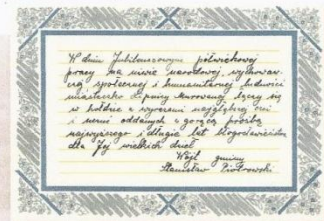 W dniu Jubileuszowym półwiekowej
pracy na niwie narodowej, wychowaw-
czej społecznej i humanitarnej ludności
miasteczko Lipnicy Murowanej łączy się
w hołdzie z wyrazami najgłębszej czci
i uczuć oddanych z gorącą prośbą
najwyższego i długie lat błogosławieństwa
dla Jej wielkich dzieł
Wójt gminy
Stanisław Piotrowski